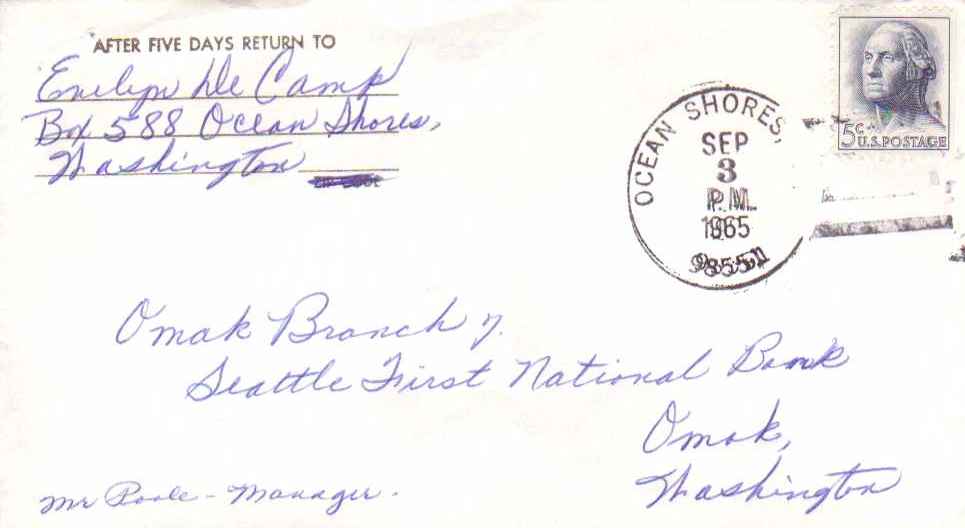 AFTER FIVE DAYS RETURN TO
Evelyn De Camp
Box 588 Ocean Shores,
Washington
OCEAN SHORES,
SEP
3
P.M.
1965
5c
U.S. POSTAGE
Omak Branch
Seattle First National Bank
Omak,
Washington
Mr Poole - Manager.